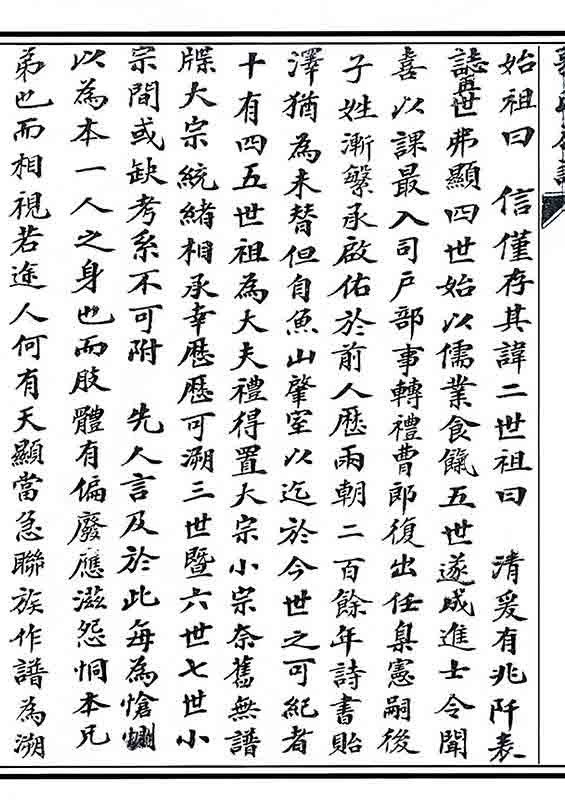 始祖曰 信僅存其諱二世祖曰 清爰有兆阡表
誌再世弗顯四世始以儒業食餼五世遂成進士令聞
喜以課最入司戶部事轉禮曹郎復出任臬憲嗣後
子姓漸繁承啟佑於前人歷兩朝二百餘年詩書貽
澤猶為未替但自魚山肇室以迄於今世之可紀者
十有四五世祖為大夫禮得置大宗小宗奈舊無譜
牒大宗統緒相承幸歷歷可溯三世暨六世七世小
宗間或缺考系不可附 先人言及於此每為愴惻
以為本一人之身也而肢體有偏廢應滋怨恫本兄
弟也而相視若途人何有天顯當急聯族作譜為溯